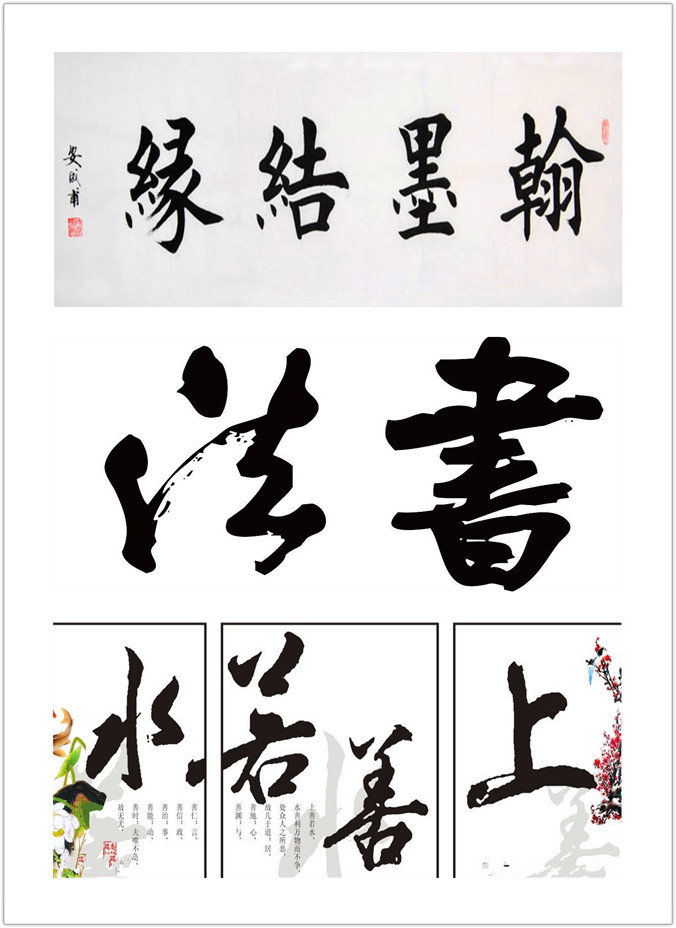 翰墨結緣
書法
上
善
若
水
上善若水，
水善利万物而不争，
处众人之所恶，
故几于道；居，
善地；心，
善渊；与，
善仁；言，
善信；政，
善治；事，
善能；动，
善时；夫唯不争，
故无尤。